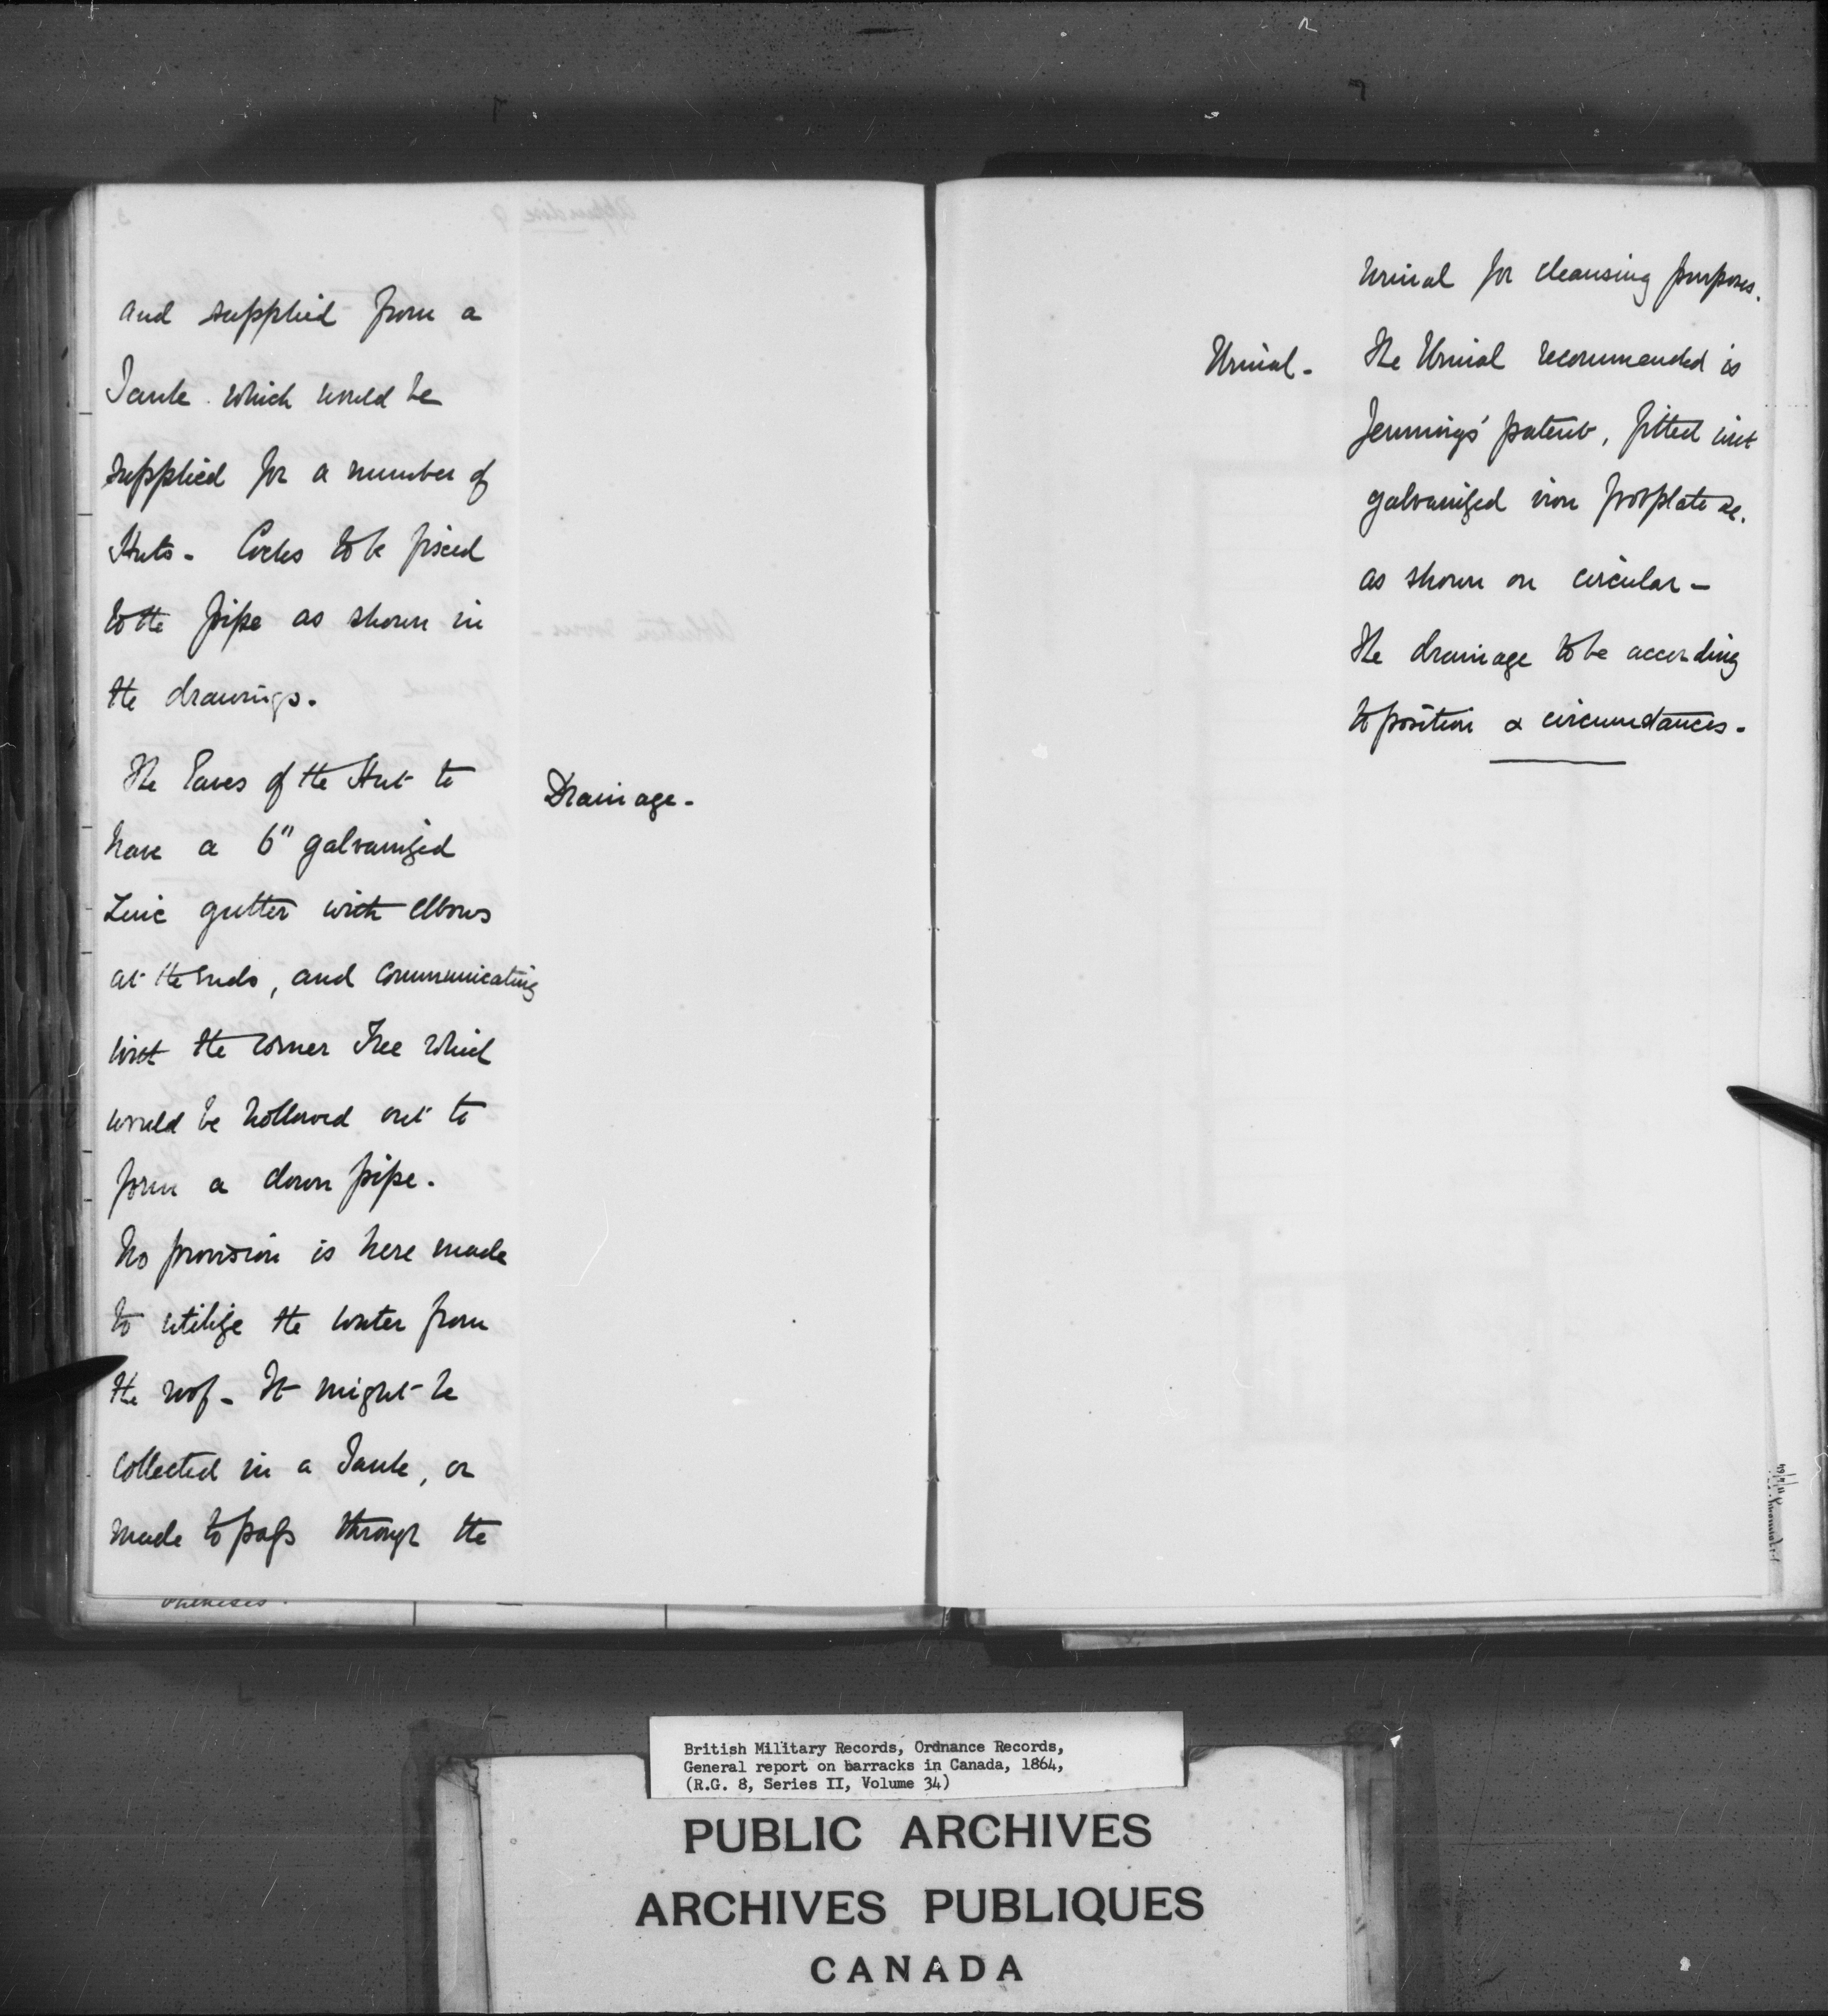 and supplied from a
Tank which would be
supplied for a number of
Huts - Cocks to be fixed
to the pipe as shown in
the drawings.
The Eaves of the Hut to
Drainage -
have a 6" galvanized
Zinc gutter with elbows
at the ends, and communicating
with the corner Tree which
would be hollowed out to
form a down pipe.
No provision is here made
to utilize the water from
the roof - It might be
collected in a Tank, or
made to pass through the
urinal for cleansing purposes.
Urinal - The Urinal recommended is
Jennings' patent, fitted with
galvanized iron footplate &c.
as shown on circular -
The drainage to be according
to position & circumstances -
British Military Records, Ordnance Records,
General report on barracks in Canada, 1864,
(R.G. 8, Series II, Volume 34)
PUBLIC ARCHIVES
ARCHIVES PUBLIQUES
CANADA